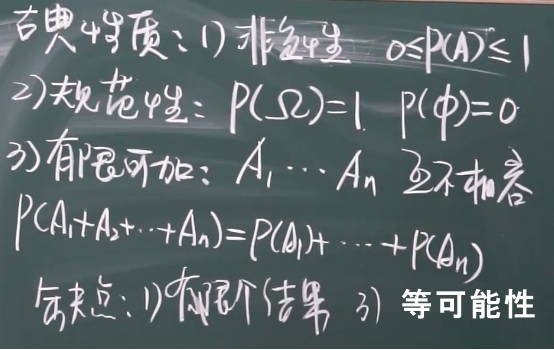 古典性质：1) 非负性 0≤P(A)≤1
2) 规范性：P(Ω)=1 P(φ)=0
3) 有限可加：A₁⋯Aₙ 互不相容
P(A₁+A₂+⋯+Aₙ)=P(A₁)+⋯+P(Aₙ)
缺点：1) 有限个结果 3) 等可能性